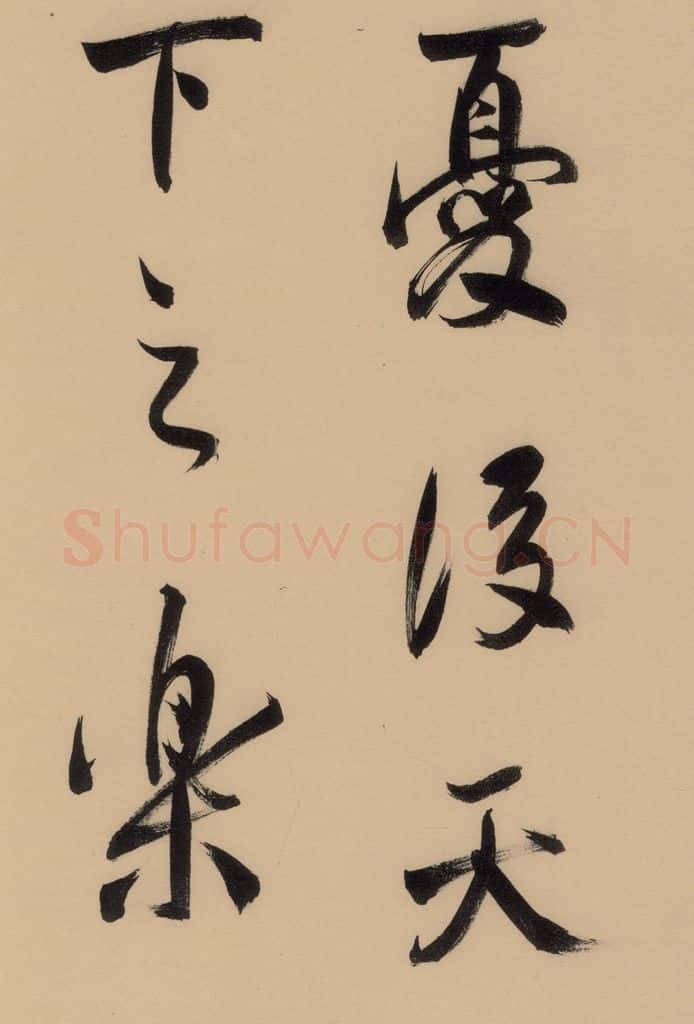 憂後天
下之樂
Shufawang.CN